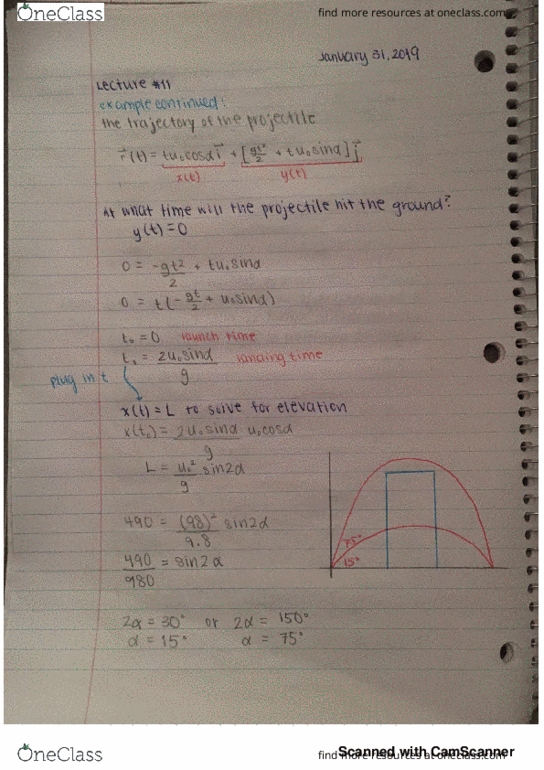 OneClass
find more resources at oneclass.com
January 31, 2019
Lecture #11
example continued:
the trajectory of the projectile
r⃗(t) = tu₀cosα i⃗ + [gt²/2 + tu₀sinα] j⃗
x(t) y(t)
At what time will the projectile hit the ground?
y(t) = 0
0 = -gt²/2 + tu₀sinα
0 = t(-gt/2 + u₀sinα)
t₀ = 0 launch time
t₁ = 2u₀sinα/g landing time
plug in t
x(t) = L to solve for elevation
x(t₀) = 2u₀sinα/g u₀cosα
L = u₀²/g sin2α
490 = (98)²/9.8 sin2α
490/980 = sin2α
75°
15°
2α = 30° or 2α = 150°
α = 15° α = 75°
OneClass
find more resources at oneclass.com
Scanned with CamScanner